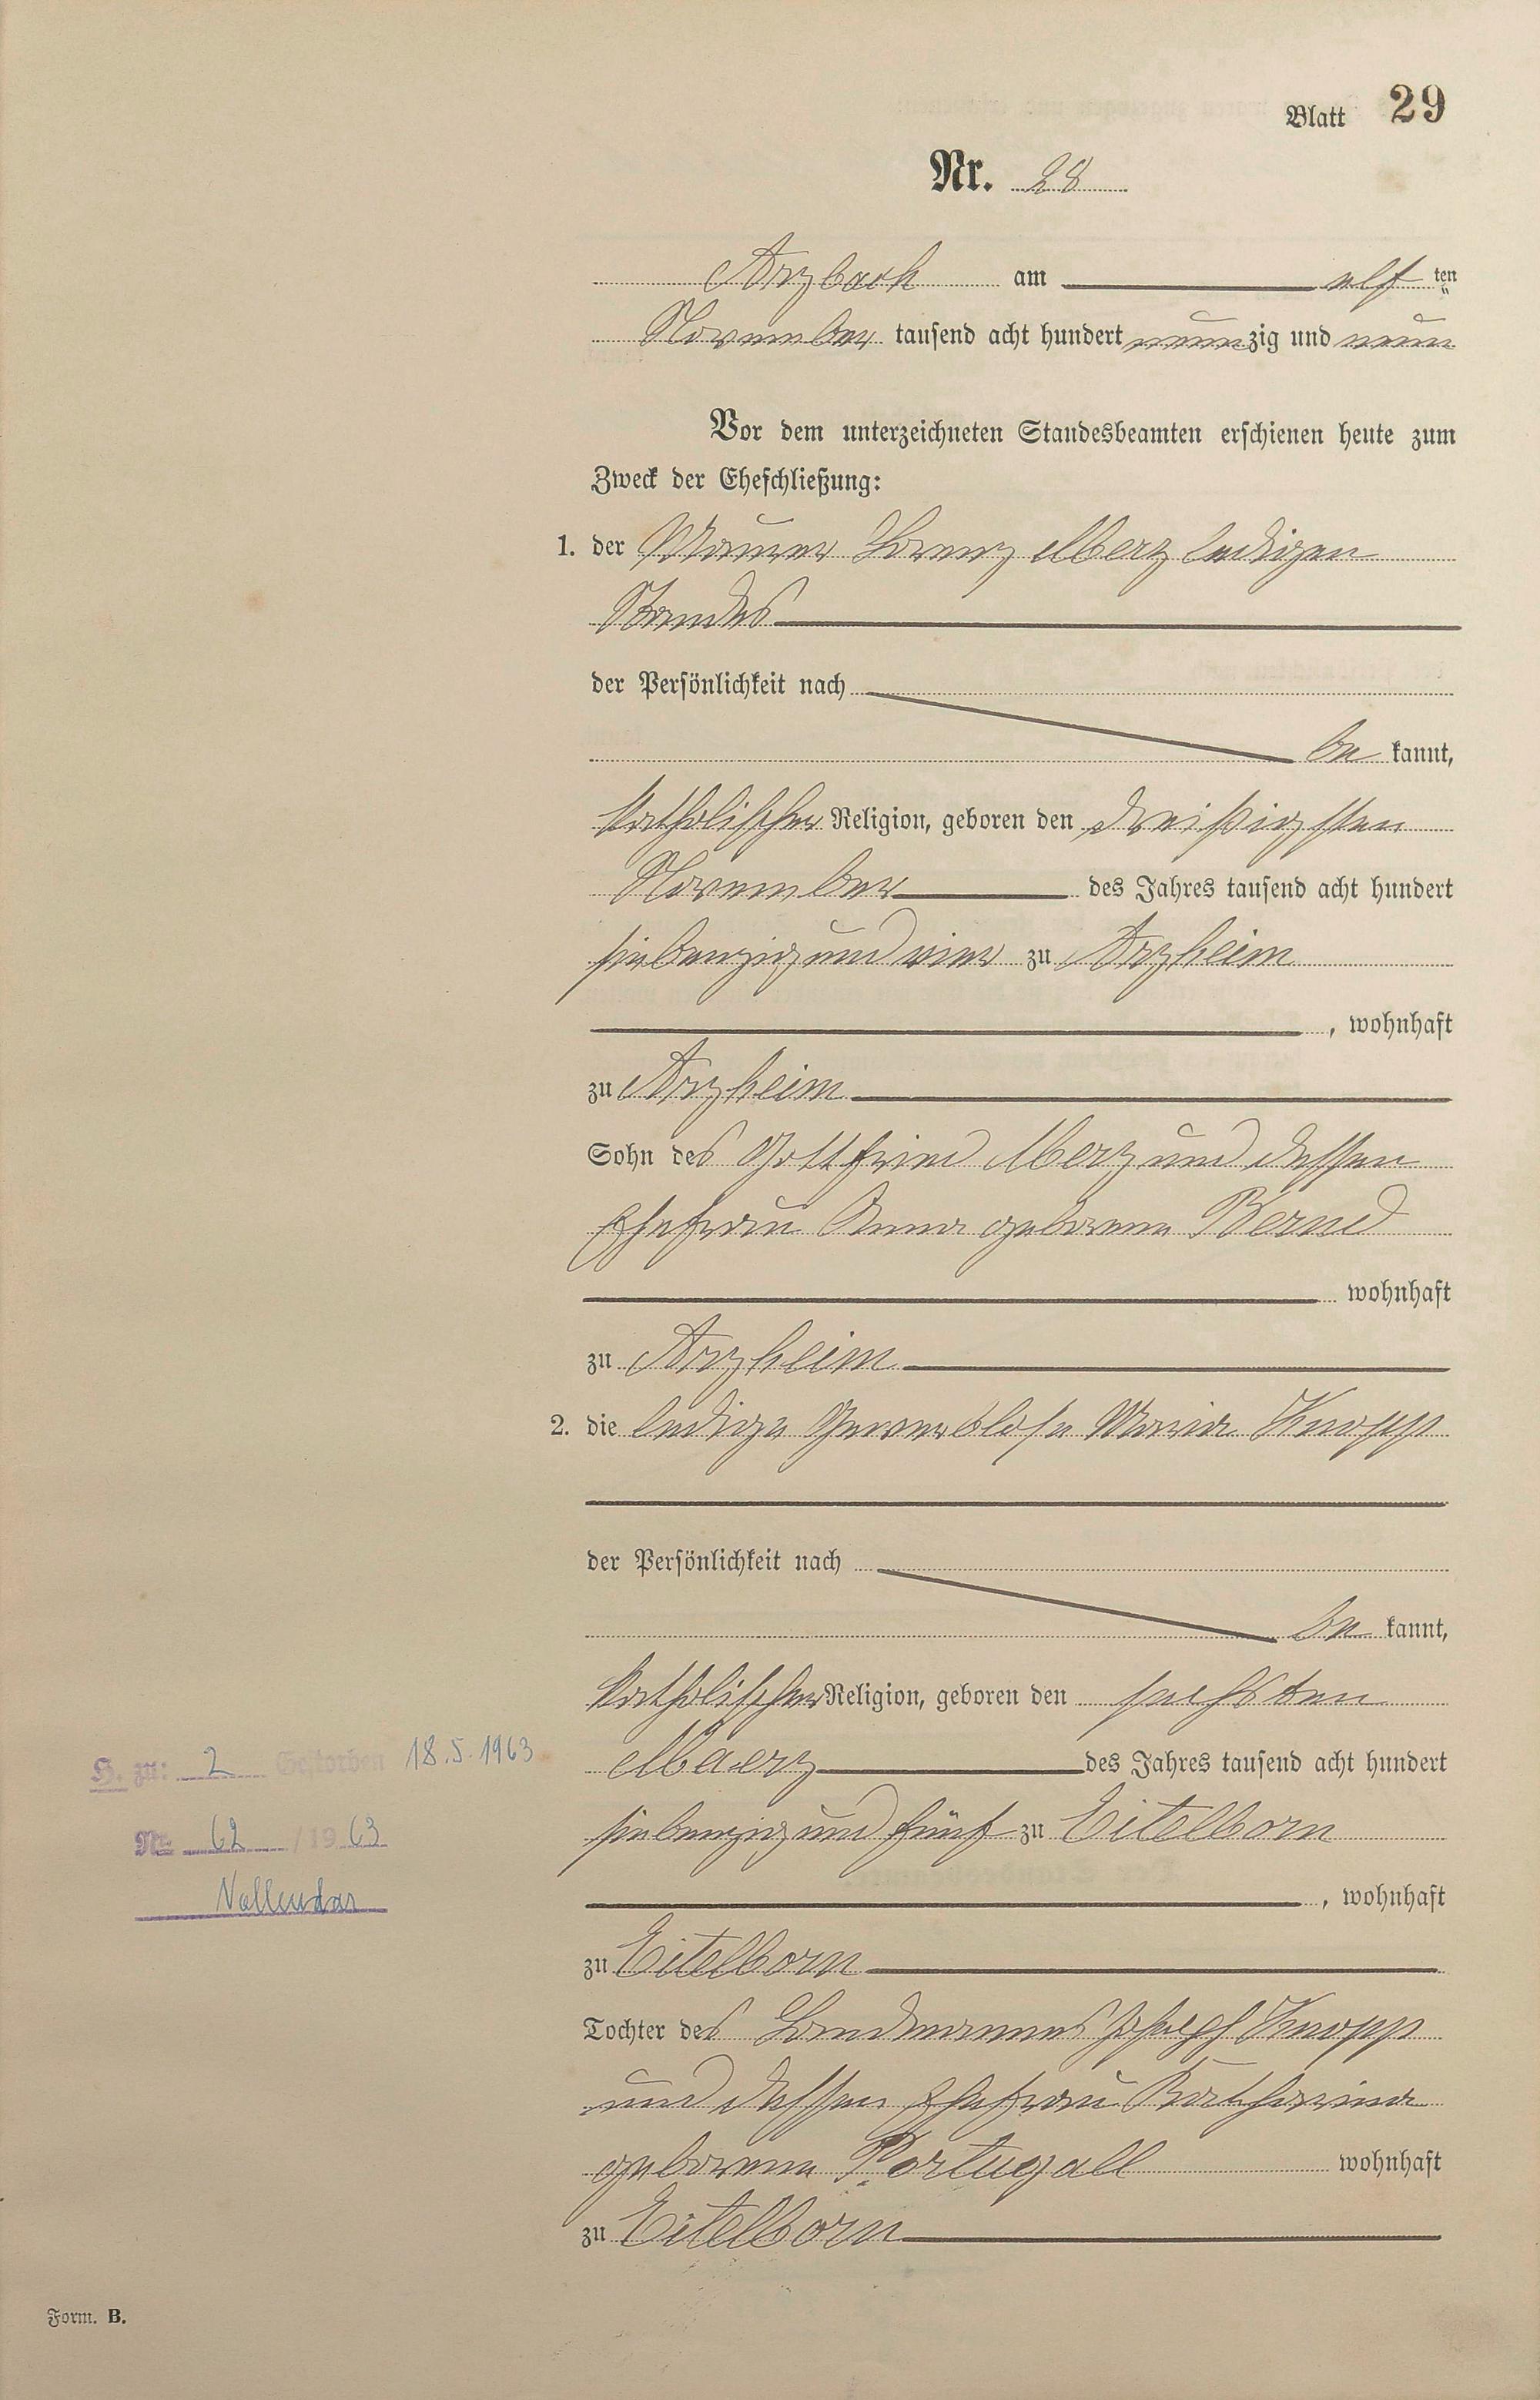 Blatt 29
Nr. 28
Arzbach am elf ten
November tausend acht hundert neunzig und neun
Vor dem unterzeichneten Standesbeamten erschienen heute zum
Zweck der Eheschließung:
1. der Maurer Lorenz Merz ledigen
Standes
der Persönlichkeit nach
be kannt,
katholischer Religion, geboren den dreißigsten
November des Jahres tausend acht hundert
siebenzig und vier zu Arzheim
, wohnhaft
zu Arzheim
Sohn des Gottfried Merz und dessen
Ehefrau Anna geborene Bernd
wohnhaft
zu Arzheim
2. die ledige Gewerblose Maria Knopp
der Persönlichkeit nach
be kannt,
katholischer Religion, geboren den sechsten
Maerz des Jahres tausend acht hundert
siebenzig und fünf zu Eitelborn
, wohnhaft
zu Eitelborn
Tochter des Landmannes Joseph Knopp
und dessen Ehefrau Katharina
geborene Portugall wohnhaft
zu Eitelborn
H. zu: 2 Gestorben 18.5.1963
Nr. 62 / 19 63
Vallendar
Form. B.